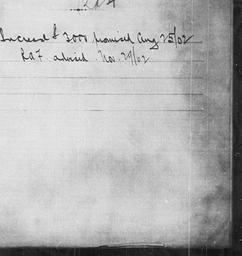 Increased £ 2000 promised Aug 25/02
R.A.F. advised Nov. 29/02